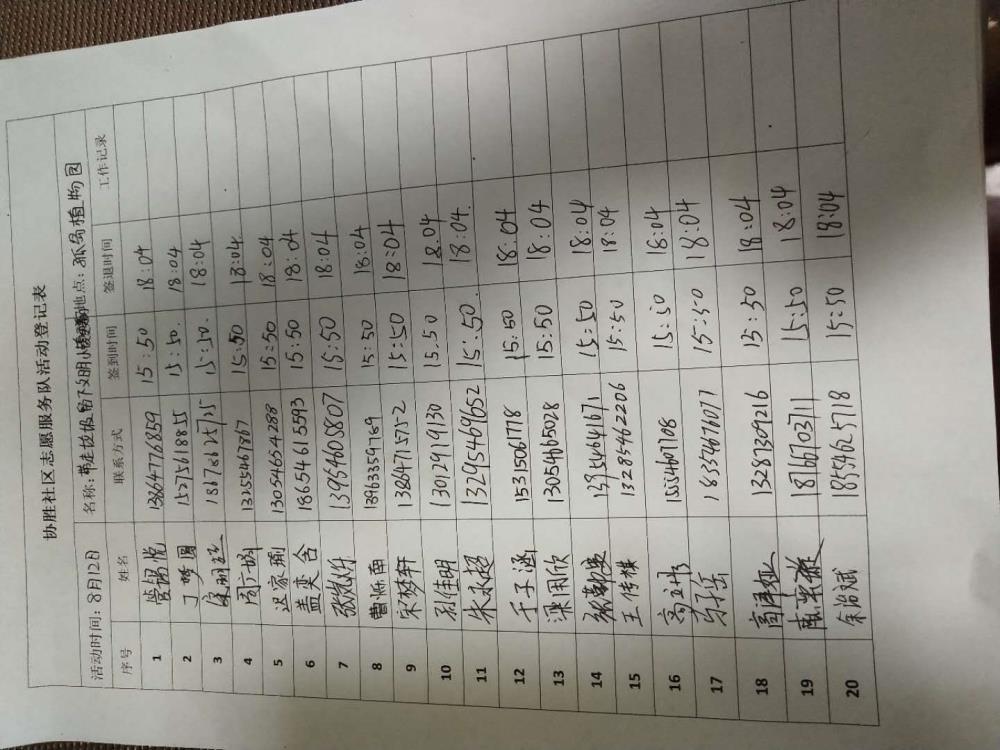 协胜社区志愿服务队活动登记表
活动时间：8月12日 名称：带走垃圾留下文明 地点：孤岛植物园
序号 姓名 联系方式 签到时间 签退时间 工作记录
1 管锡悦 13864776859 15:50 18:04
2 丁梦圆 15275618855 15:50. 18:04
3 18786625125 15:50. 18:04
4 周广娟 13255467867 15:50 18:04.
5 迟家瑜 13054654288 15:50 18:04
6 盖奕含 18654615593 15:50 18:04
7 13954605807 15:50 18:04
8 曹烁南 13963359789 15:50 18:04
9 宋梦轩 13864715752 15:50 18:04
10 孙佳明 13012919130 15.50 18.04
11 朱永超 13295469652 15:50. 18:04.
12 于子涵 15315061778 15:50 18:04
13 渠雨欣 13054665028 15:50 18:04
14 13954641671 15:50 18:04
15 王传棋 13285462206 15:50 18:04
16 15554601708 15:50 18:04
17 18354676077 15:50 18:04
18 13287309216 15:50 18:04
19 18166703711 15:50 18:04
20 余治斌 18554625718 15:50 18:04